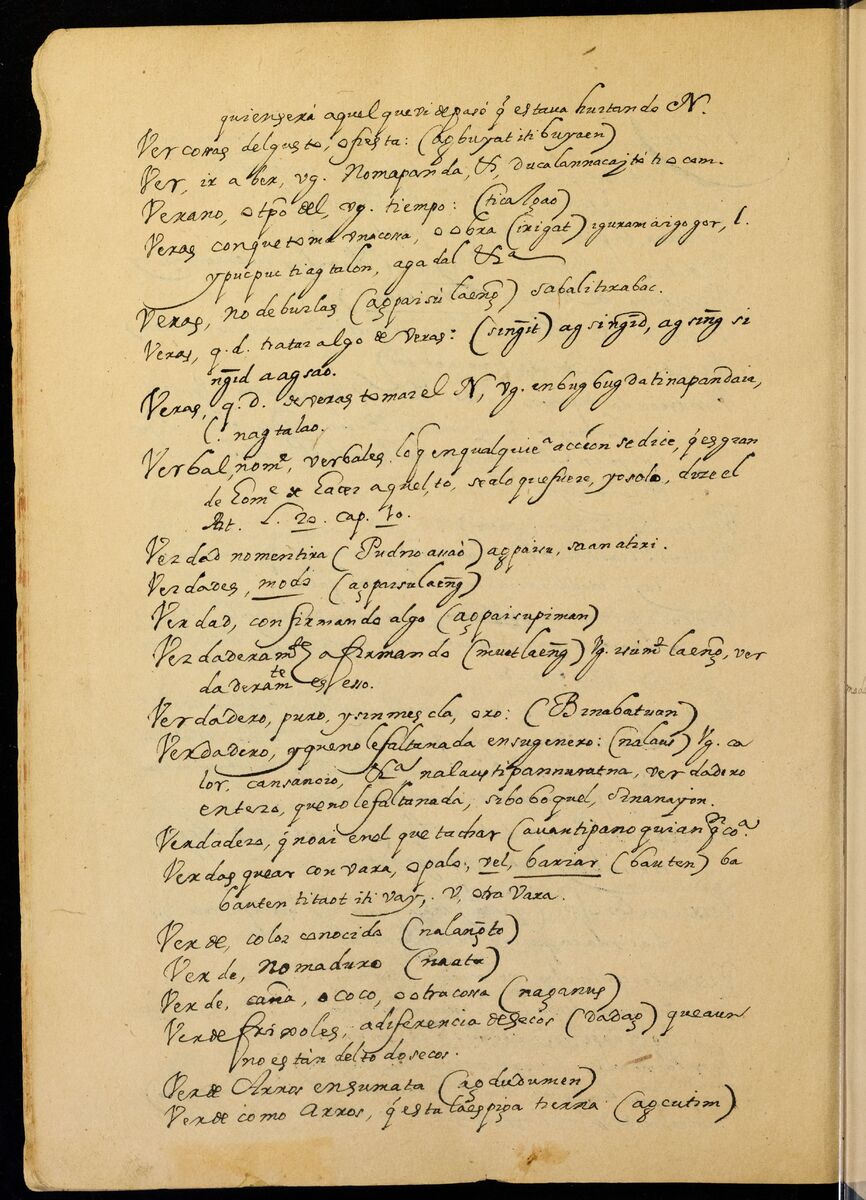 quien será aquel que vi de paso q̃ estava hurtando N.
Ver cosas del gusto, o fiesta: (ag̃buyat iti buyaen)
Ver, ir a ber, vg. Nomapanda, &, ducalannacajtó ti
Verano, o tp̃o del, vg. tiempo: (ticalgao)
Veras con que toma vna cosa, o obra (irigat) iguramáigogor, l.
ypucpuc ti agtalon, aga dal &ª
Veras, no de burlas (ag̃paisú laeng̃) sabali tirabac.
Veras, q. d. tratar algo de veras: (sing̃it) ag sing̃id, ag sing̃ si
ng̃id a agsao.
Veras, q. d. de veras tomar el N, vg. enbugbugda tinapandair,
l. nagtalao.
Verbal, nomᵉ, verbales lo q̃ en qualquieª accion se dice, q̃ es gran
de hacer aquel, to, sealo que fuere, yo solo, dize el
Art. L. 20. cap. 10.
Verdad no mentira (Pudno auaó) ag̃paisu, saanatiri.
Verdades, modo (ag̃paisulaeng̃)
Verdad, confirmando algo (ag̃paisupiman)
Verdaderamᵗᵉ afirmando (muetlaeng̃) Vg. laeng̃, ver
daderamᵗᵉ es esso.
Verdadero, puro, y sin mescla, oro: (Binabatuan)
Verdadero, y que no le falta nada en su genero: (nalaus) Vg. ca
lor, cansancio, &ª nalaus ti pannuratna, verdadero
entero, que no le falta nada, siboboquel, sinanajon.
Verdadero, q̃ no ai en el que tachar (auantipanoquian
Verdasquear con vara, o palo, vel, bariar (bauten) ba
bauten titaot iti vay, v, otra vara.
Verde, color conocido (nalang̃to)
Verde, no maduro (naata)
Verde, caña, o coco, o otra cosa (nag̃anus)
Verde frixoles, a diferencia de secos (dadag̃) que aun
no estàn del todo secos.
Verde Arros en su mata (ag̃dudumen)
Verde como Arros, q̃ esta la espiga tierna (ag̃cutim)